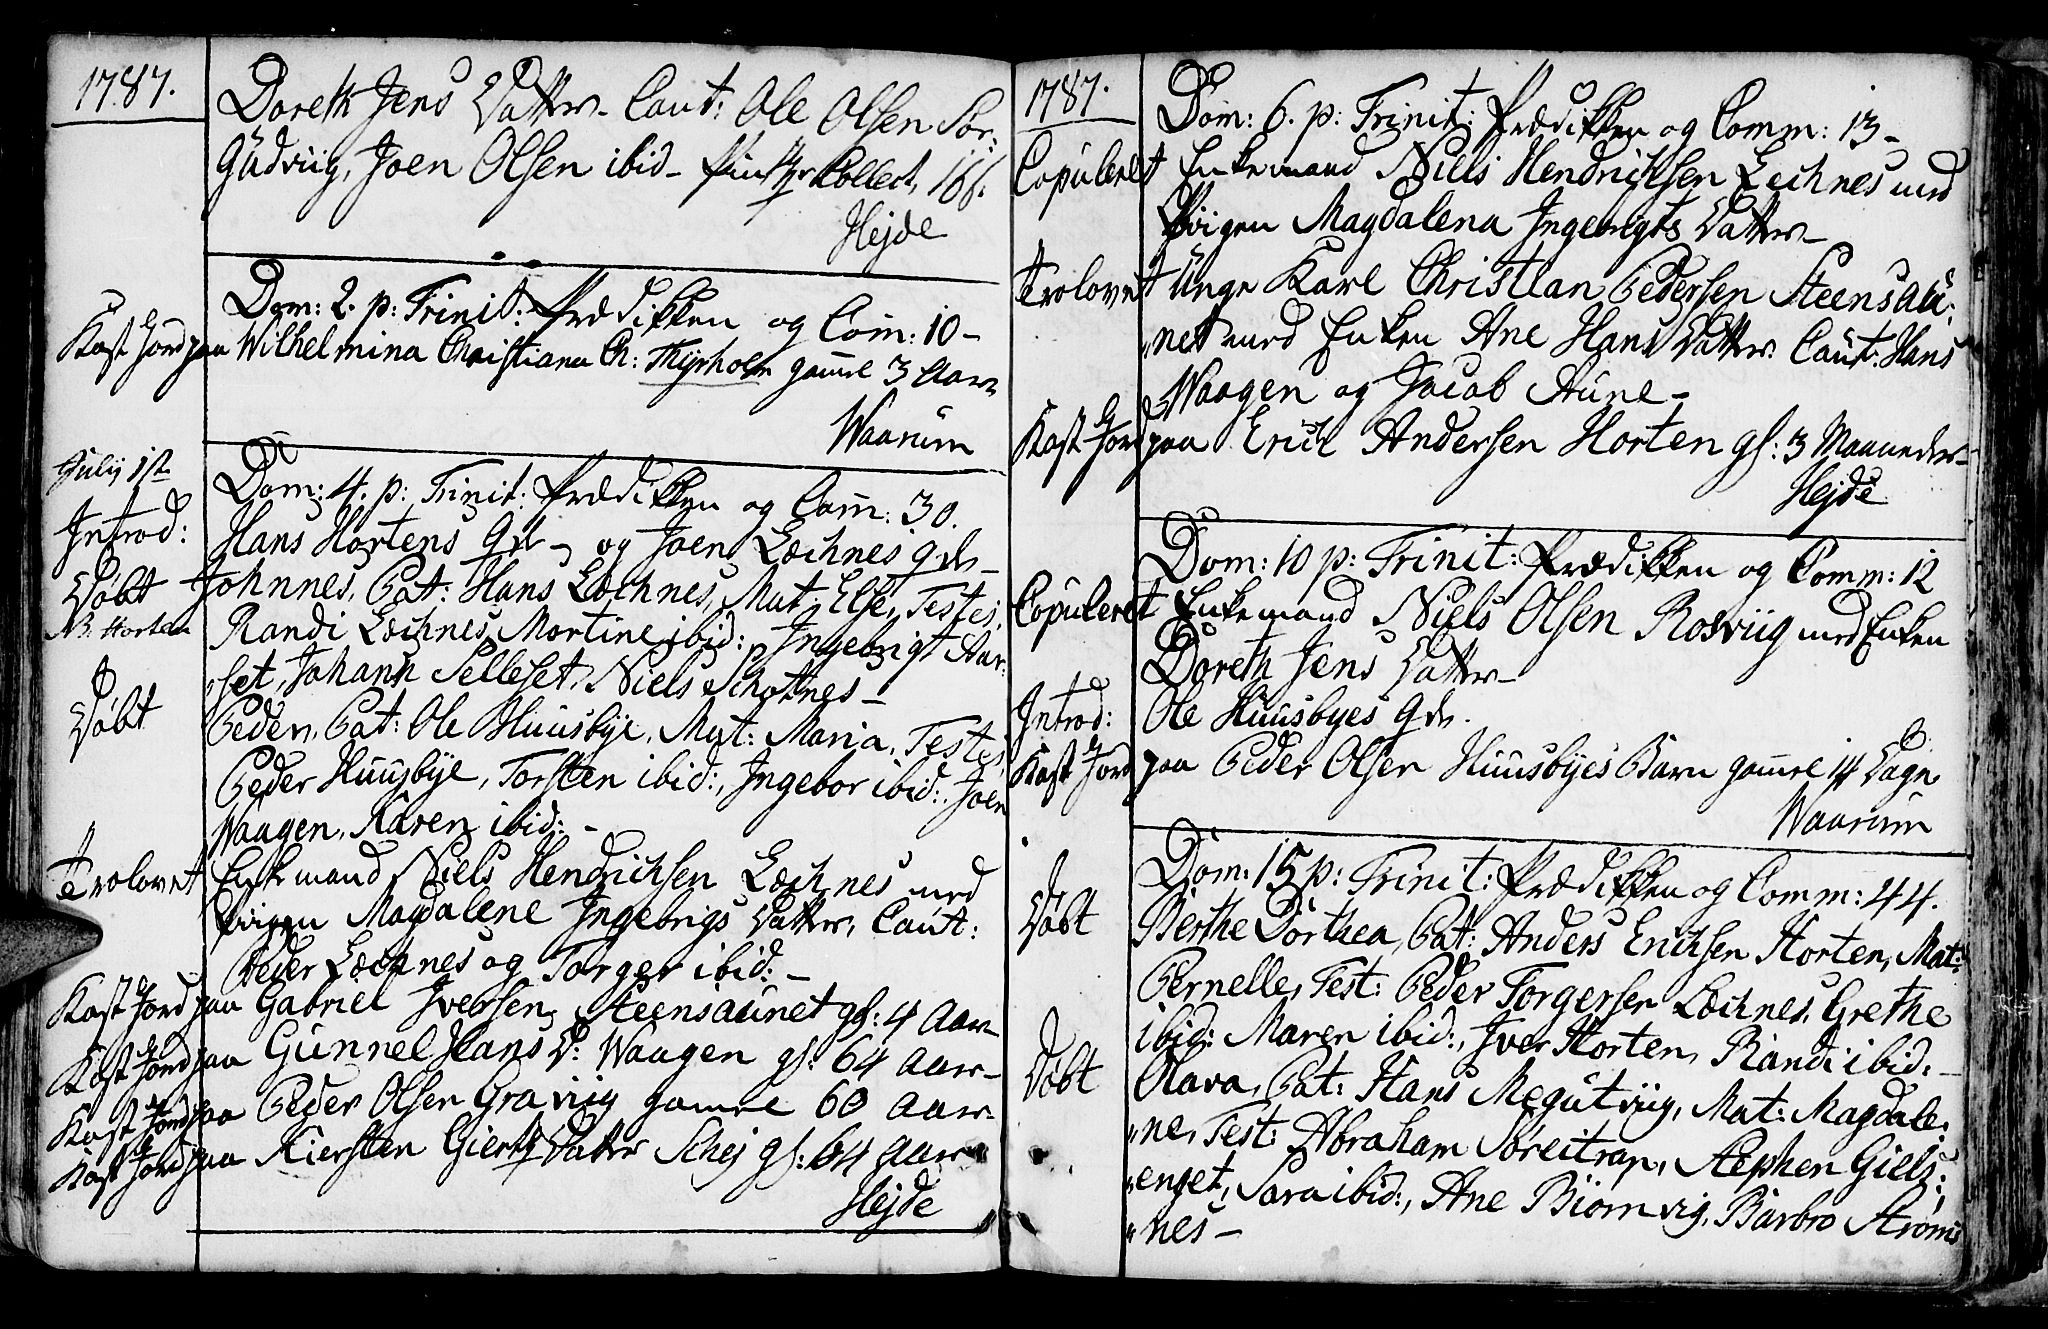 1787.
Doreth Jens Datter – Caut: Ole Olsen Sør-
Gudviig, Joen Olsen ibid –  Collect,
Hejde
Dom: 2. p: Trinit: Prædikken og Com: 10 –
Kast Jord paa Wilhelmina Christiana Ch: Thyrholm gamel 3 Aar
Waarum
July 1st Dom: 4. p: Trinit: Prædikken og Com: 30.
Introd: Hans Hortens Qde – og Joen Lechnes Qde –
Døbt Johnnes, Pat: Hans Lechnes, Mat: Else, Testes,
NB. Horten Randi Lechnes, Mortine ibid:, Ingebrigt Aar-
„set, Johann Selleset, Niels Schottnes –
Døbt Peder, Pat: Ole Huusbye, Mat: Maria, Testes,
Peder Huusbye, Torsten ibid:, Ingebor ibid:, Joen
Waagen, Karen ibid: –
Trolovet Enkemand Niels Hendrichsen Lechnes med
Pigen Magdalene Ingebrigs Datter, Caut:
Peder Lechnes og Torger ibid: –
Kast Jord paa Gabriel Iversen Steensaunet gl: 4 Aar –
Kast Jord paa Gunnel Hans D: Waagen gl: 64 Aar –
Kast Jord paa Peder Olsen Graviig gamel 60 Aar –
Kast Jord paa Kiersten Giertz Datter Schej gl: 64 Aar
Hejde
1787.
Dom: 6. p: Trinit: Prædikken og Comm: 13 –
Copuleret Enkemand Niels Hendrichsen Lechnes med
Pigen Magdalena Ingebrigts Datter –
Trolovet Unge Karl Christian Pedersen Steensau-
„net med Enken Ane Hans Datter Caut: Hans
Waagen og Jacob Aune –
Kast Jord paa Erich Andersen Horten gl: 3 Maaneder –
Hejde
Dom: 10 p: Trinit: Prædikken og Comm: 12
Copuleret Enkemand Niels Olsen Rosviig med Enken
Doreth Jens Datter –
Introd: Ole Huusbyes Qde.
Kast Jord paa Peder Olsen Huusbyes Barn gamel 14 Dage
Waarum
Dom: 15 p: Trinit: Prædikken og Comm: 44.
Døbt Berthe Dorthea, Pat: Anders Erichsen Horten, Mat:
Pernelle, Test: Peder Torgersen Lechnes, Grethe
ibid: Maren ibid:, Iver Horten, Randi ibid: –
Døbt Olava, Pat: Hans Megutviig, Mat: Magdale-
„ne, Test: Abraham Søreitrap, Stephen Giels-
„enget, Sara ibid:, Ane Biørnvig, Barbro Strøm-
„nes –